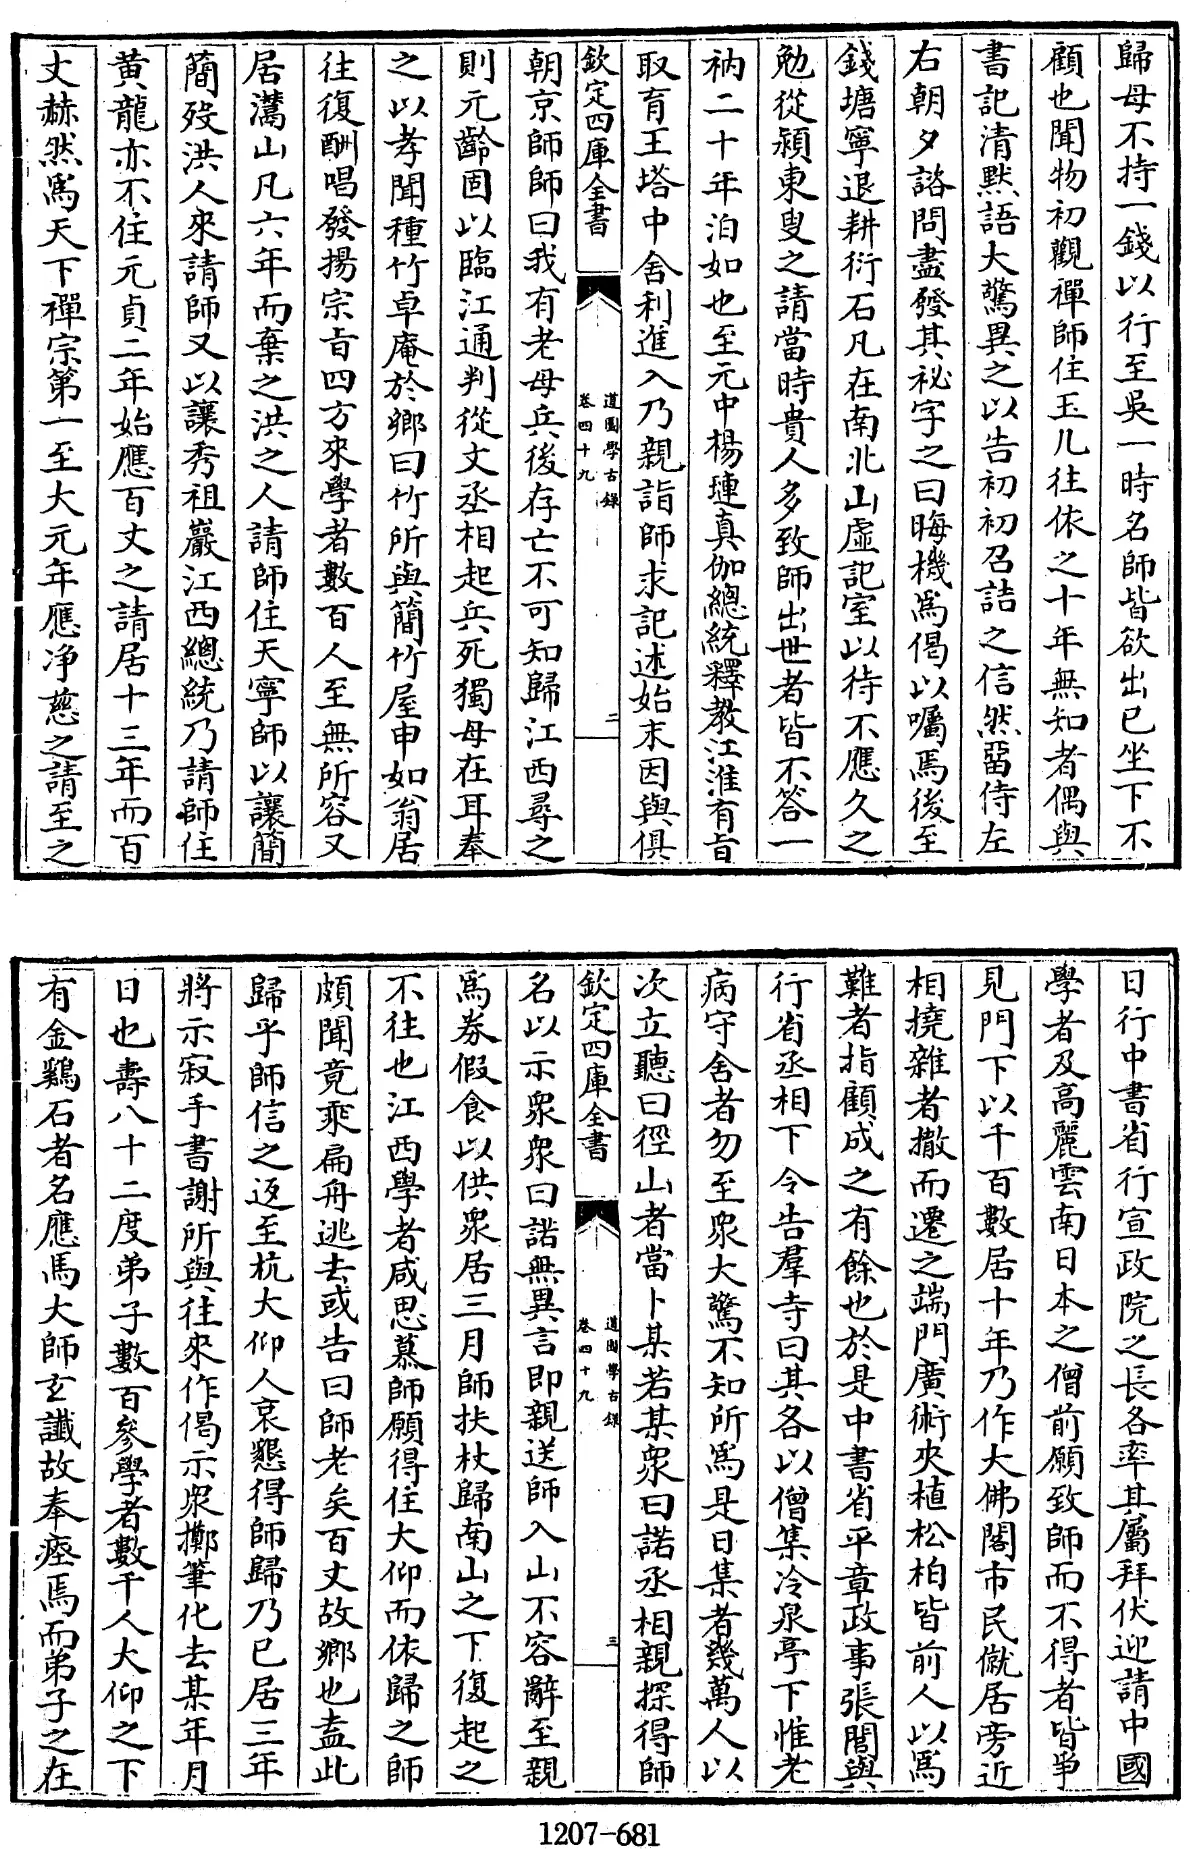 歸母不持一錢以行至吳一時名師皆欲出已坐下不
顧也聞物初觀禪師住玉几往依之十年無知者偶與
書記清默語大驚異之以告初初召詰之信然畱侍左
右朝夕諮問盡發其祕字之曰晦機為偈以囑焉後至
錢塘寧退耕衍石凡在南北山虛記室以待不應久之
勉從潁東叟之請當時貴人多致師出世者皆不答一
衲二十年泊如也至元中楊璉真伽總統釋教江淮有旨
取育王塔中舍利進入乃親詣師求記述始末因與俱
欽定四庫全書
道園學古錄
卷四十九
二
朝京師師曰我有老母兵後存亡不可知歸江西尋之
則元齡固以臨江通判從文丞相起兵死獨母在耳奉
之以孝聞種竹卓庵於鄉曰竹所與簡竹屋申如翁居
往復酬唱發揚宗旨四方來學者數百人至無所容又
居灊山凡六年而棄之洪之人請師住天寧師以讓簡
簡歿洪人來請師又以讓秀祖巖江西總統乃請師住
黃龍亦不住元貞二年始應百丈之請居十三年而百
丈赫然為天下禪宗第一至大元年應淨慈之請至之
日行中書省行宣政院之長各率其屬拜伏迎請中國
學者及高麗雲南日本之僧前願致師而不得者皆爭
見門下以千百數居十年乃作大佛閣市民僦居旁近
相撓雜者撤而遷之端門廣術夾植松柏皆前人以為
難者指顧成之有餘也於是中書省平章政事張閭與
行省丞相下令告羣寺曰其各以僧集冷泉亭下惟老
病守舍者勿至眾大驚不知所為是日集者幾萬人以
次立聽曰徑山者當卜某若某眾曰諾丞相親探得師
欽定四庫全書
道園學古錄
卷四十九
三
名以示眾眾曰諾無異言即親送師入山不容辭至親
為券假食以供眾居三月師扶杖歸南山之下復起之
不往也江西學者咸思慕師願得住大仰而依歸之師
頗聞竟乘扁舟逃去或告曰師老矣百丈故鄉也盍此
歸乎師信之返至杭大仰人哀懇得師歸乃已居三年
將示寂手書謝所與往來作偈示眾擲筆化去某年月
日也壽八十二度弟子數百參學者數千人大仰之下
有金鷄石者名應馬大師玄讖故奉塔焉而弟子之在
1207-681